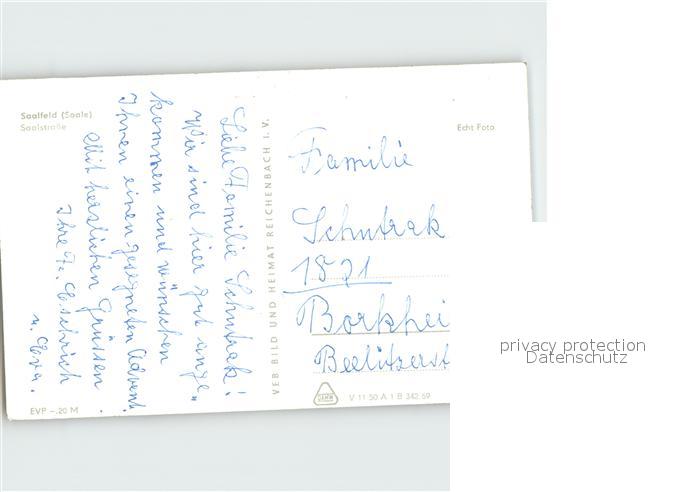 Saalfeld (Saale)
Saalstraße
Liebe Familie Schutrak!
Wir sind hier gut ange„
kommen und wünschen
Ihnen einen gesegneten Advent.
Mit herzlichen Grüssen
Ihre F. Eschrich
u. Eva.
EVP –.20 M
VEB BILD UND HEIMAT REICHENBACH I. V.
Echt Foto
Familie
Schutrak
1821
Borkhei
Beelitzerst
V 11 50 A 1 B 342/69
privacy protection
Datenschutz